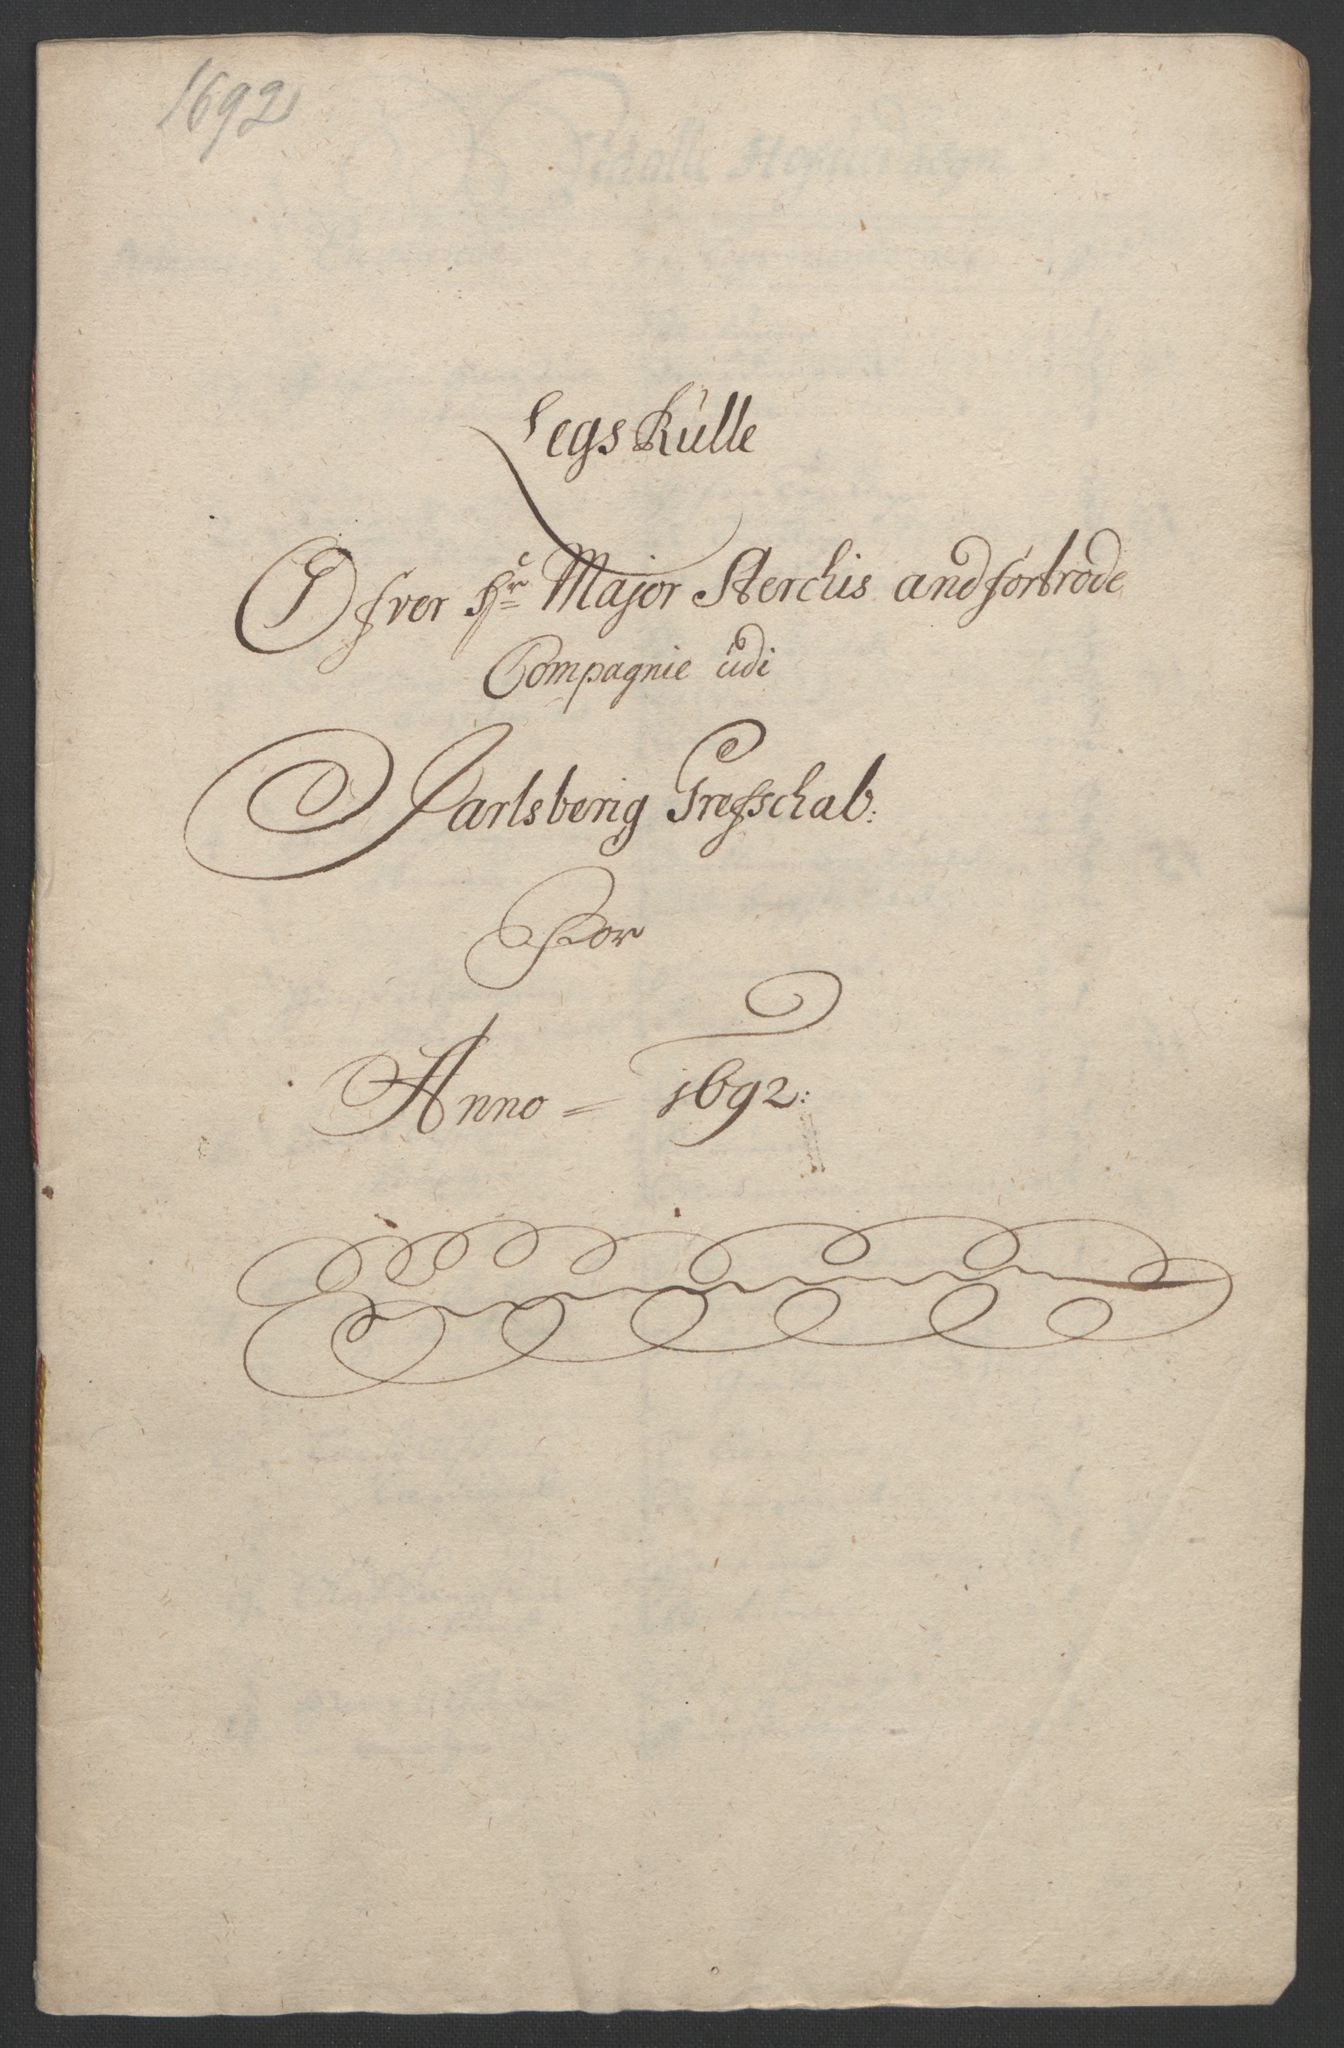 1692
Legs Rulle
Ofver Hr Major Sterchis andfortrode
Compagnie udi
Jarlsberig Grefschab:
For
Anno = 1692: